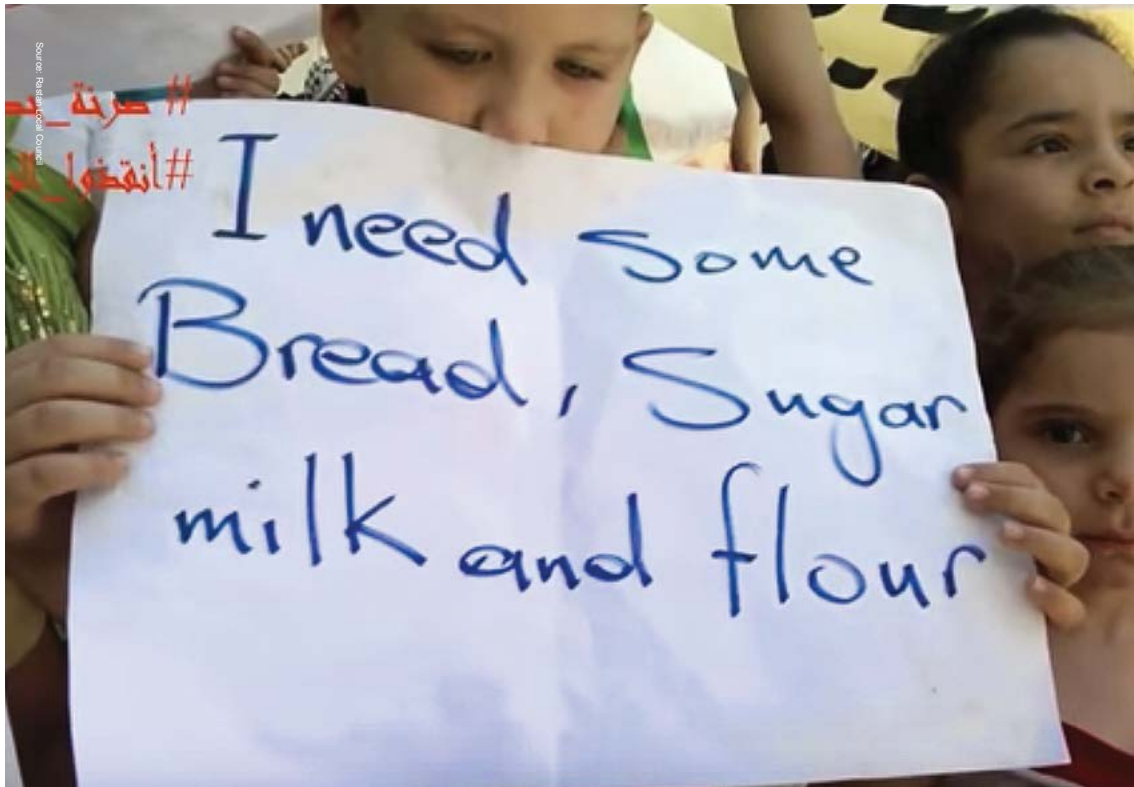 Source: Rastan Local Council
# صرخة
#أنقذوا
I need some
Bread, Sugar
milk and flour